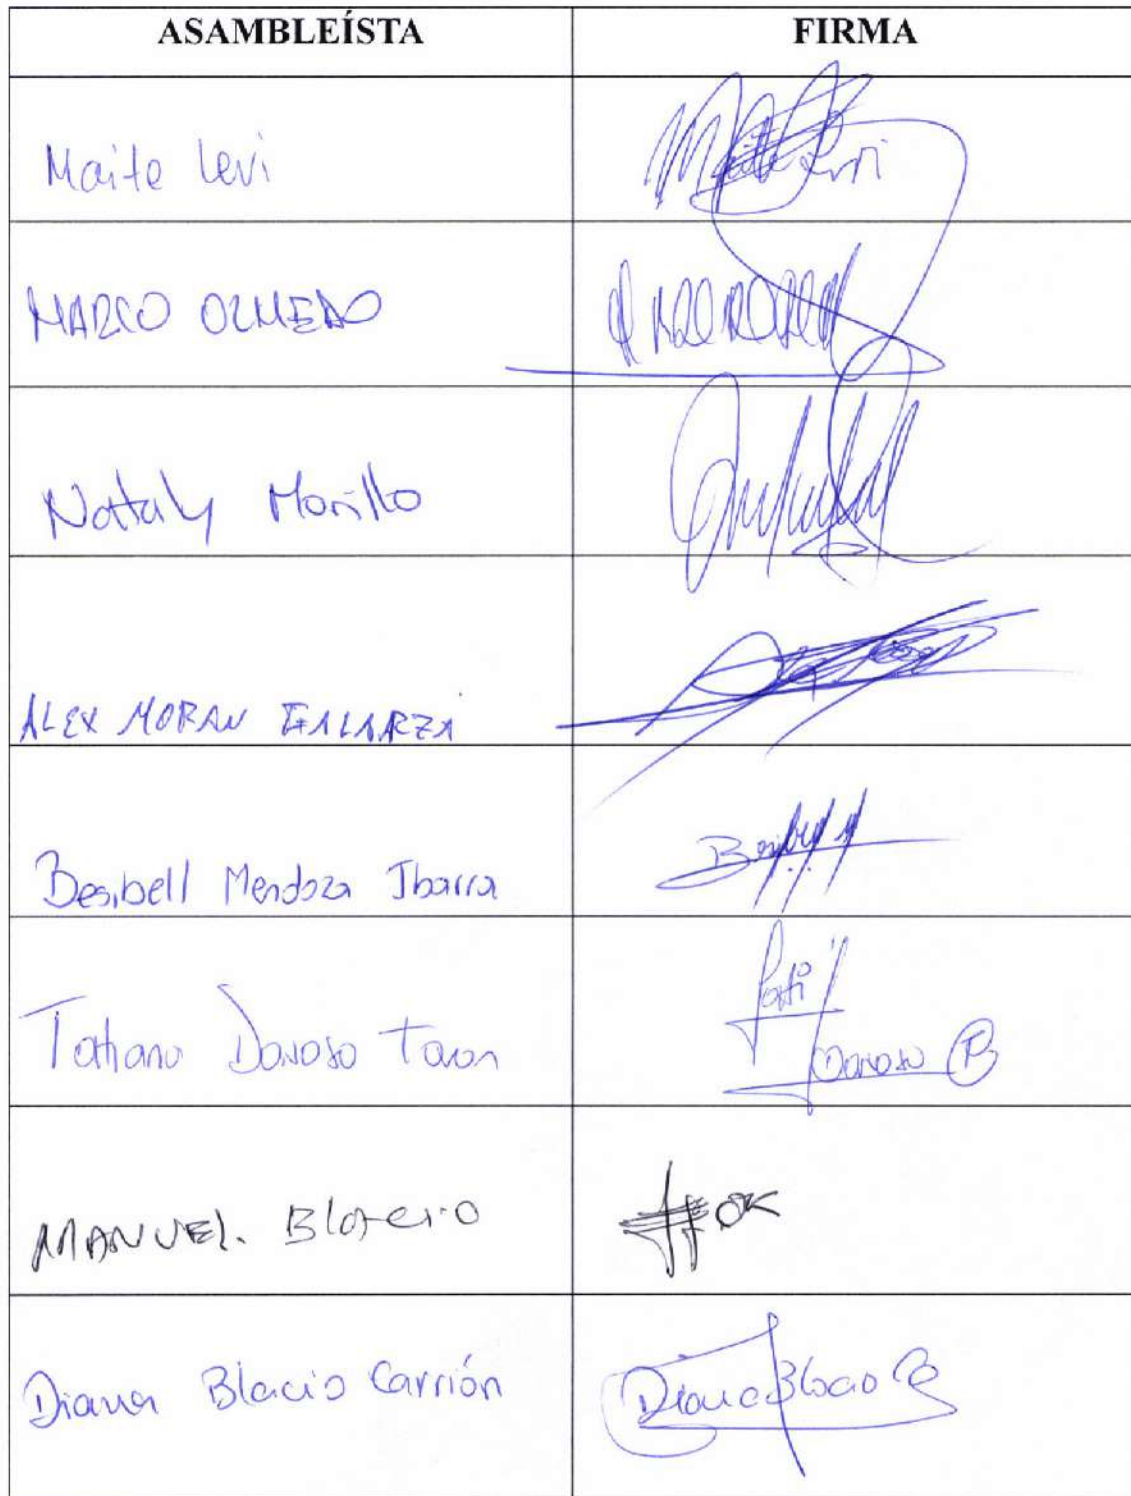 ASAMBLEÍSTA FIRMA
Maite Levi
MARCO OLMEDO
Nataly Morillo
ALEX MORAN GALARZA
Besibell Mendoza Ibarra
Tatiana Donoso
Donoso
MANUEL. Blacio
OK
Diana Blacio Carrión
Diana Blacio